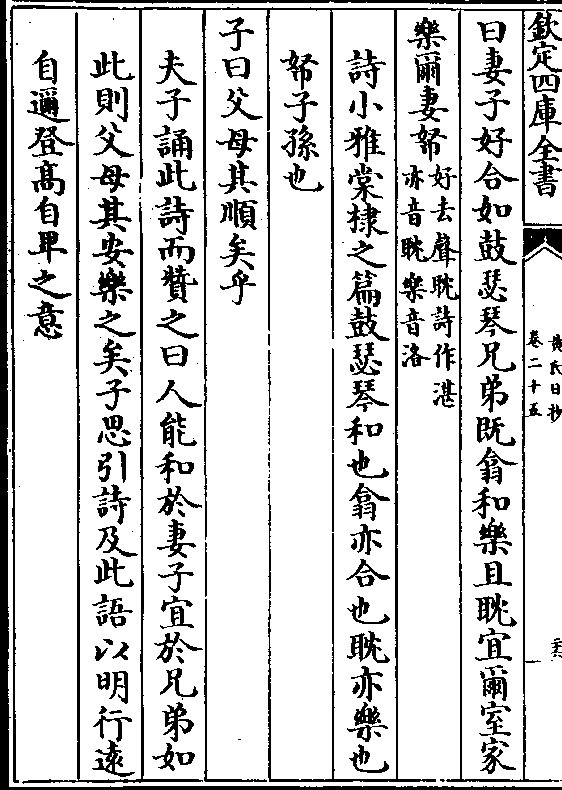 欽定四庫全書
黄氏日抄
卷二十五
曰妻子好合如鼓瑟琴兄弟既翕和樂且眈宜爾室家
樂爾妻帑好去聲眈詩作湛亦音眈樂音洛
詩小雅棠棣之篇鼓瑟琴和也翕亦合也眈亦樂也
帑子孫也
子曰父母其順矣乎
夫子誦此詩而贊之曰人能和於妻子宜於兄弟如
此則父母其安樂之矣子思引詩及此語以明行遠
自邇登高自卑之意